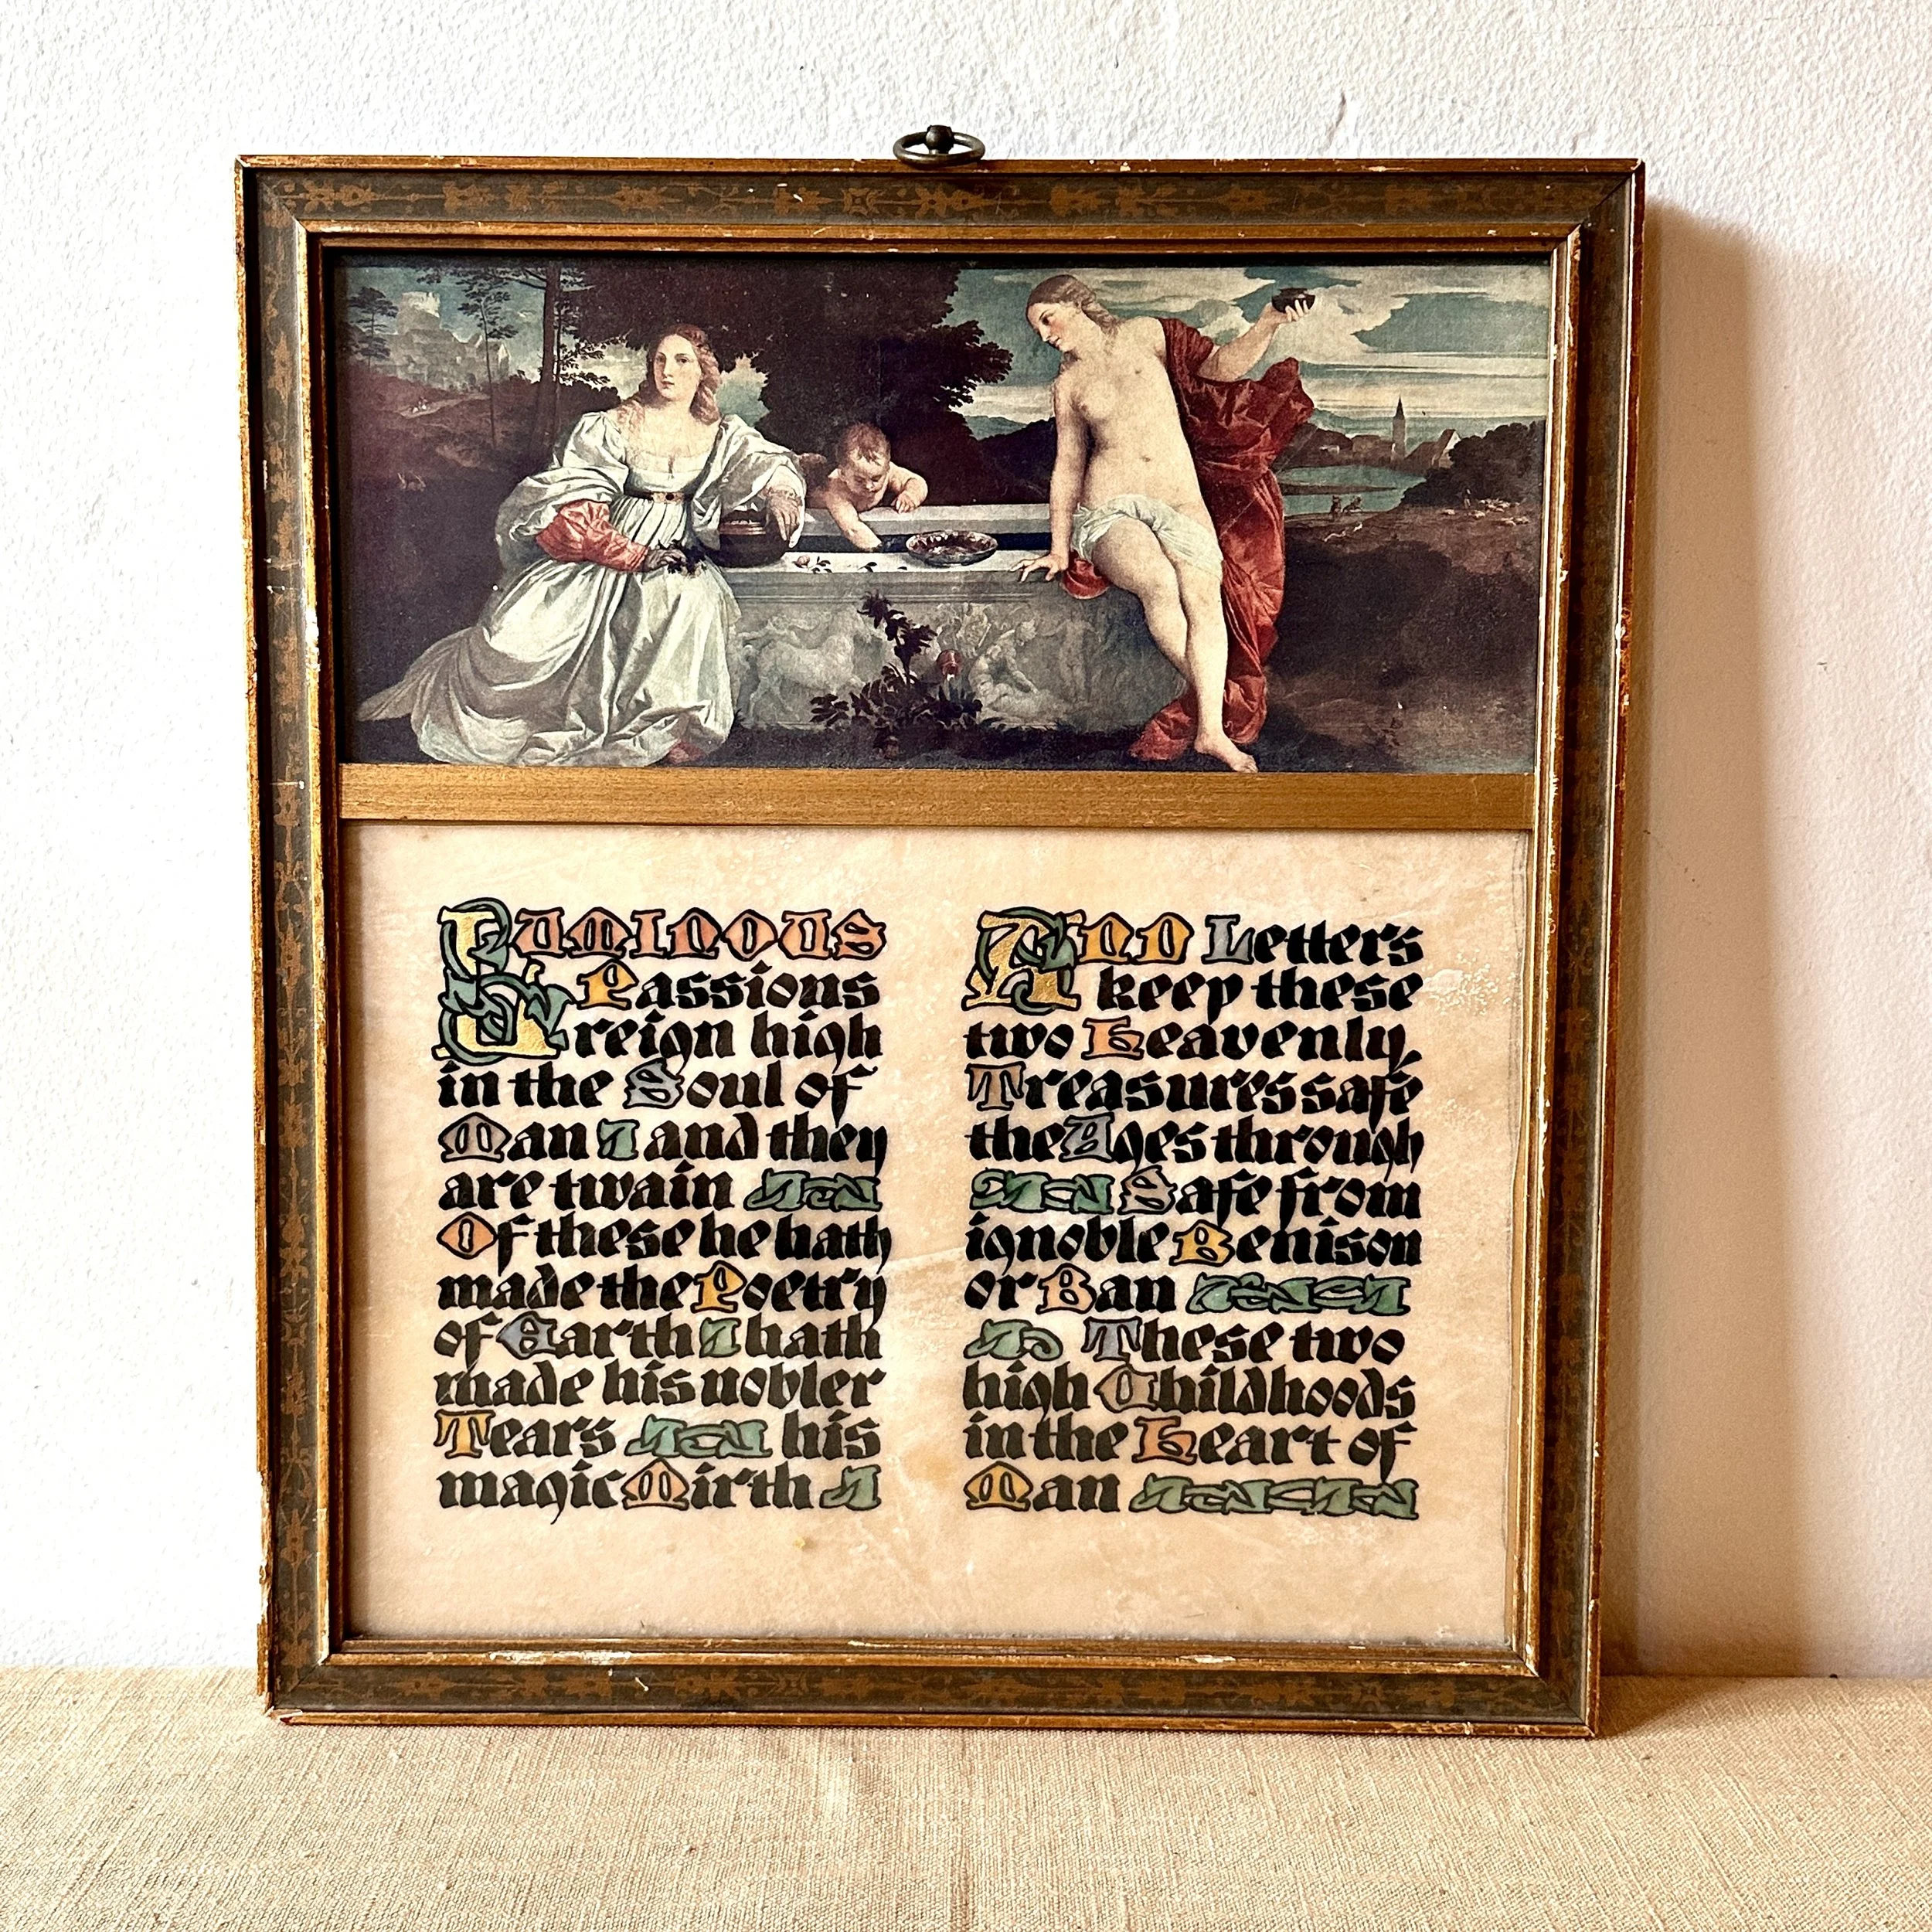 LUMINOUS
Passions
reign high
in the Soul of
Man and they
are twain
Of these he hath
made the Poetry
of Earth hath
made his nobler
Tears his
magic Mirth
AND Letters
keep these
two Heavenly
Treasures safe
the Ages through
Safe from
ignoble Benison
or Ban
These two
high Childhoods
in the Heart of
Man